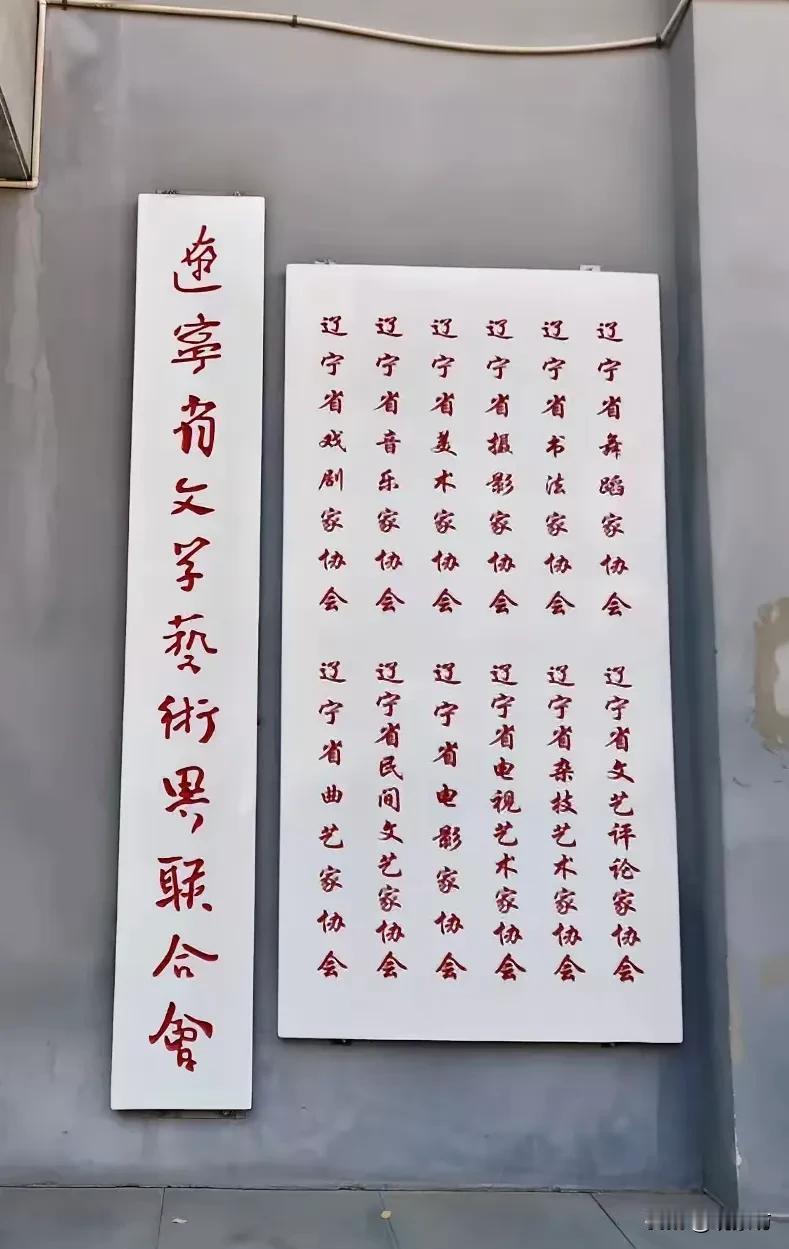 遼寧省文学藝術界联合會
辽宁省戏剧家协会
辽宁省音乐家协会
辽宁省美术家协会
辽宁省摄影家协会
辽宁省书法家协会
辽宁省舞蹈家协会
辽宁省曲艺家协会
辽宁省民间文艺家协会
辽宁省电影家协会
辽宁省电视艺术家协会
辽宁省杂技艺术家协会
辽宁省文艺评论家协会